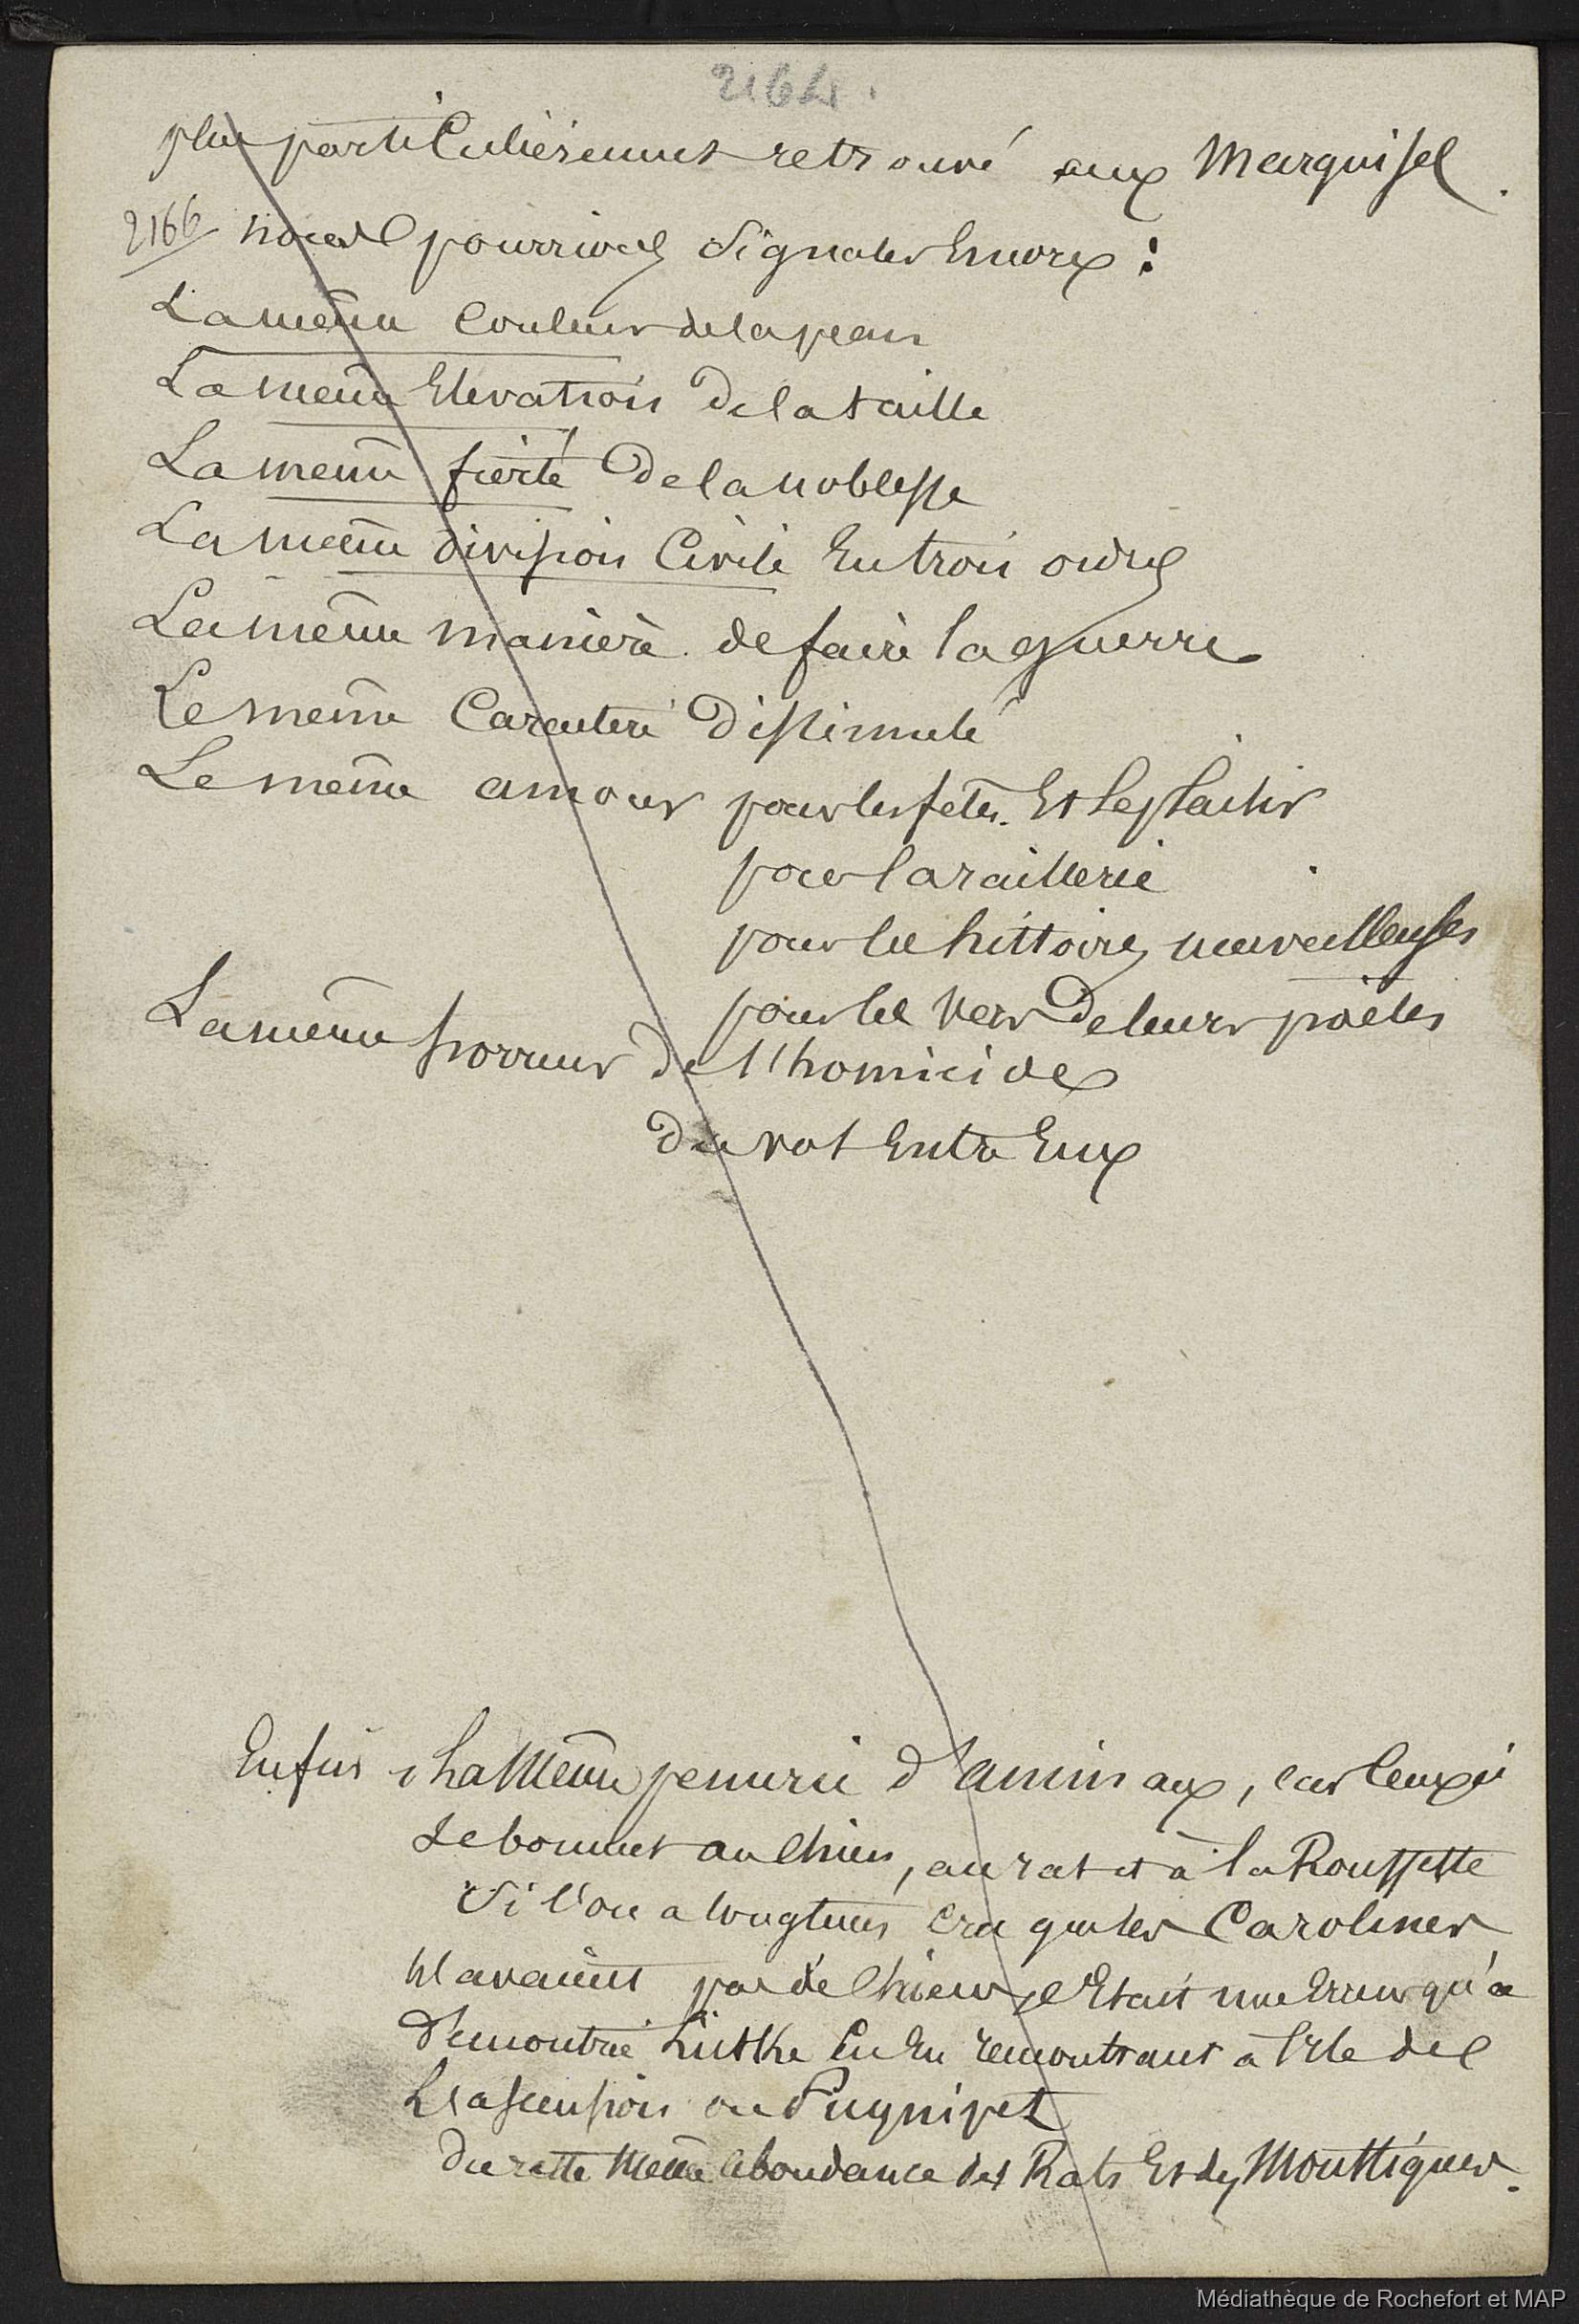 2164.
plus particulièrement retrouvé aux Marquises.
2166 nous pourrions signaler encore :
La même couleur de la peau
La même Elevation de la taille
La même fierté de la noblesse
La même division Civile En trois ordres
La même manière de faire la guerre
Le même Caractère dissimulé
Le même amour pour les fêtes Et le plaisir
pour la raillerie
pour les histoires merveilleuses
pour les vers de leurs poètes
La même horreur de l'homicide
du vol Entre Eux
Enfin la Même penurie d'animaux, car ceux ci
se bornent au chien, au rat et à la Roussette
Si l'on a longtems cru que les Carolines
n'avaient pas de chiens, c'Etait une Erreur qu'a
démontré Lütke En En rencontrant à l'île de
L'ascension ou Puynipet
du reste Même abondance des Rats Et des Moustiques.
Médiathèque de Rochefort et MAP